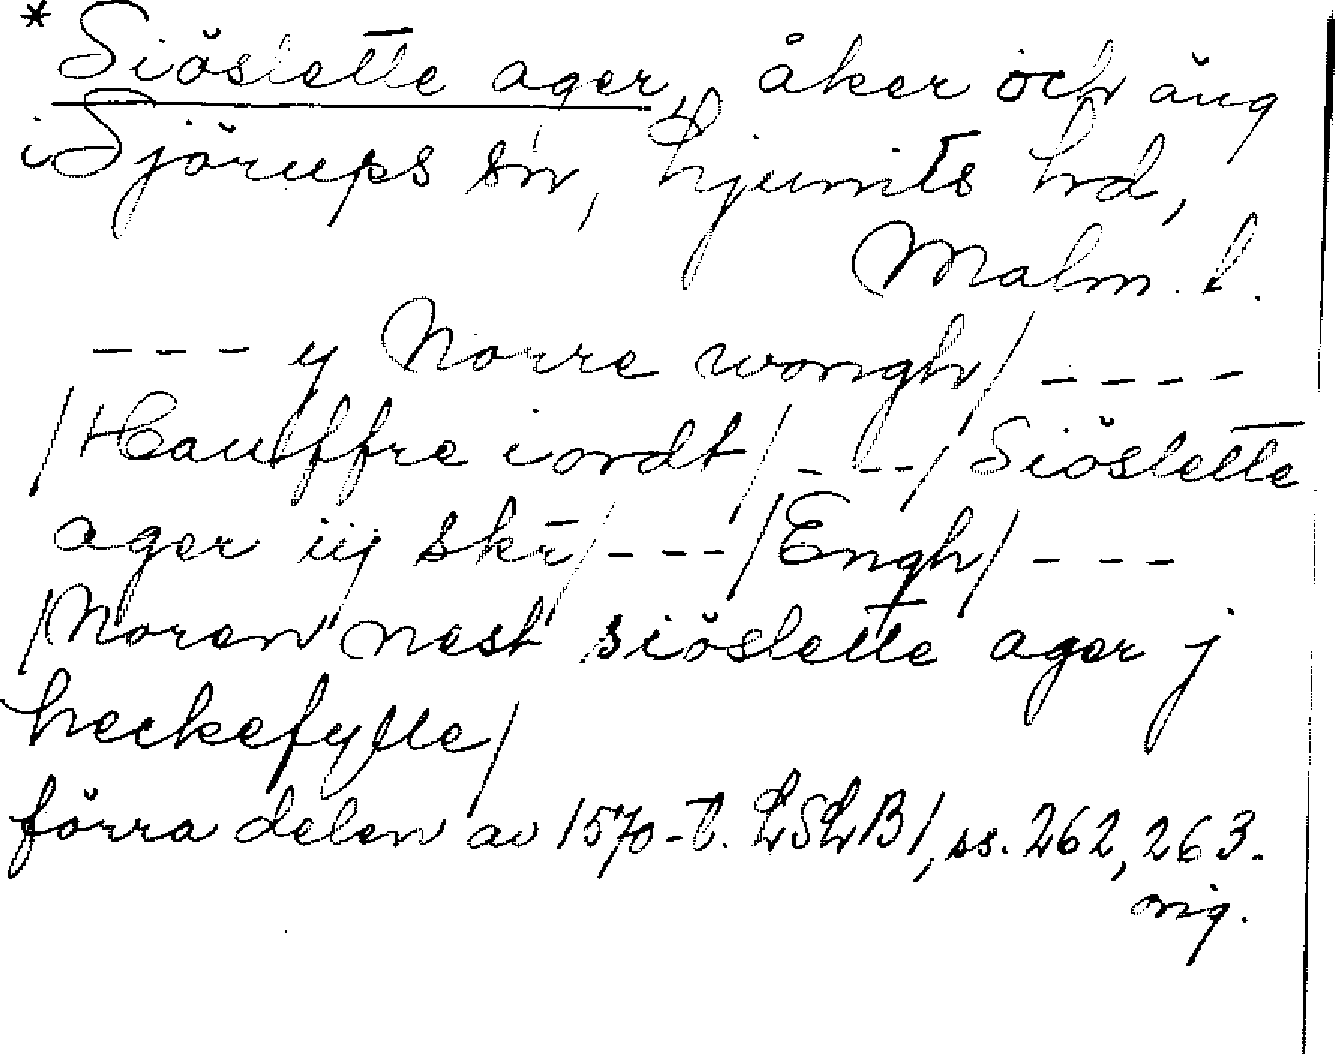 * Siöslette ager, åker och äng
i Sjörups sn, Ljunits hd,
Malm. l.
--- y Norre wongh/ ----
/Hauffre iordt/ ---/ Siöslette
ager iij skr/ ---/Engh/ ---
/Noren nest siöslette ager j
heckefylle/
förra delen av 1570-t. LSLB1, ss. 262, 263.
orig.